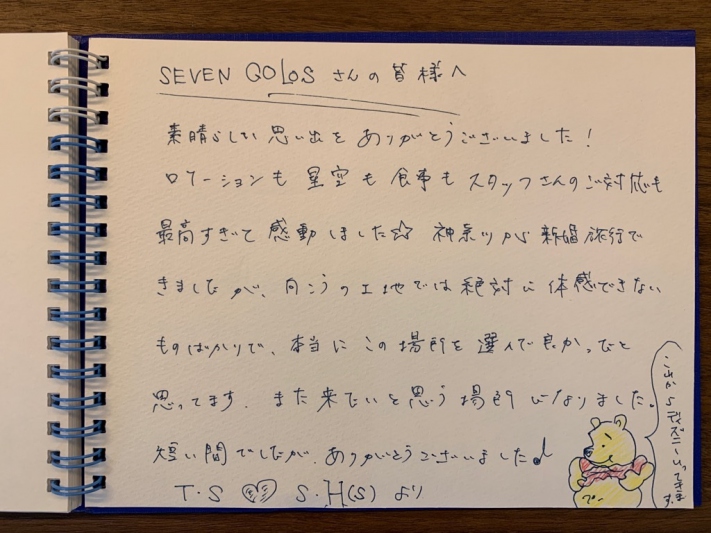 SEVEN COLOS さんの皆様へ
素晴らしい思い出をありがとうございました!
ロケーションも星空も食事もスタッフさんのご対応も
最高すぎて感動しました☆ 神奈川から新婚旅行で
きましたが、向こうの土地では絶対に体感できない
ものばかりで、本当にこの場所を選んで良かったと
思ってます。また来たいと思う場所になりました。
短い間でしたが、ありがとうございました♪
T・S ♡ S・H(S) より
これからディズニーいってきます
プー